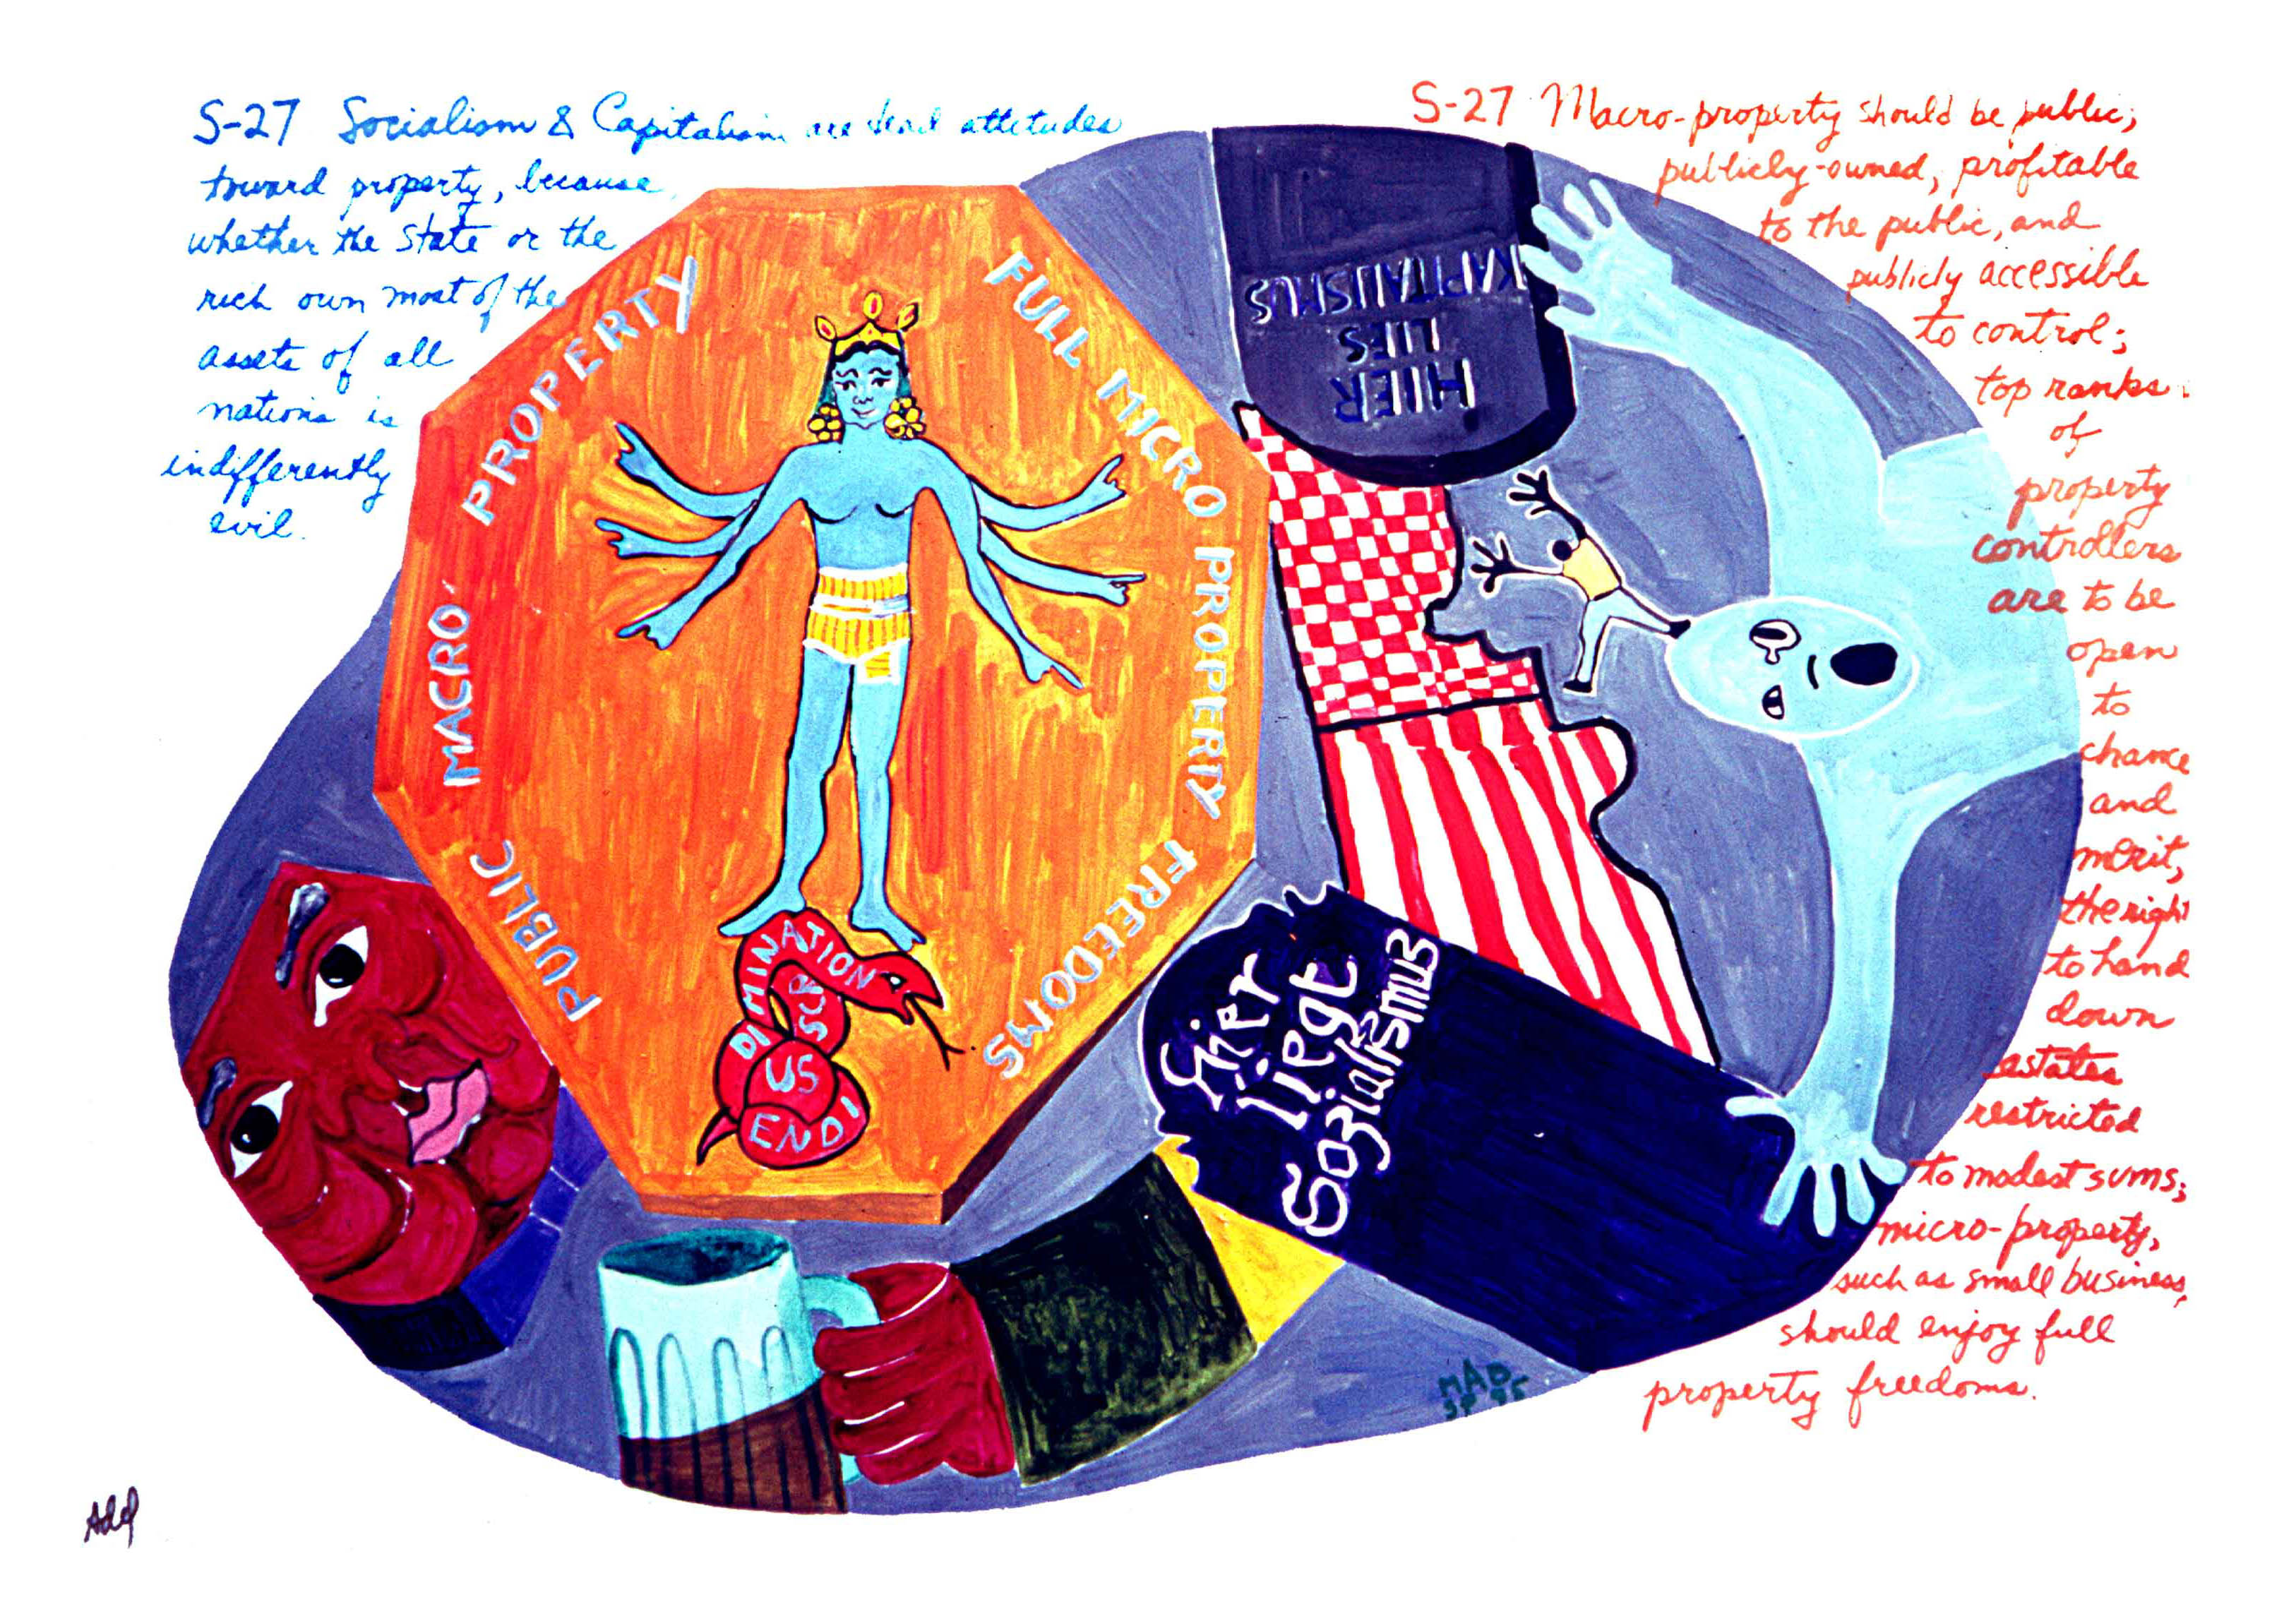 S-27 Socialism & Capitalism are dead attitudes
toward property, because,
whether the state or the
rich own most of the
assets of all
nations is
indifferently
evil.
S-27 Macro-property should be public;
publicly-owned, profitable
to the public, and
publicly accessible
to control;
top ranks
of
property
controllers
are to be
open
to
chance
and
merit,
the right
to hand
down
estates
restricted
to modest sums;
micro-property,
such as small business,
should enjoy full
property freedoms.
PUBLIC MACRO PROPERTY
FULL MICRO PROPERTY FREEDOMS
HIER
LIES
KAPITALISMUS
Hier
liegt
Sozialismus
DIMINATION
US
ENDI